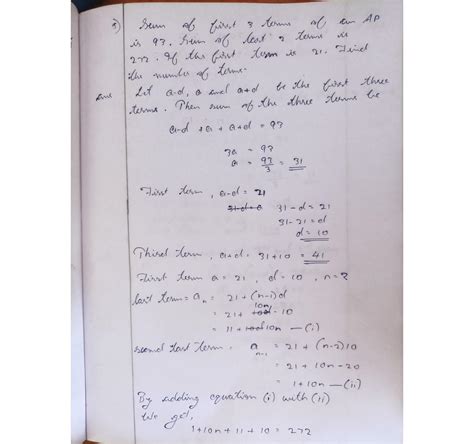 3) Sum of first 3 terms of an AP
is 93. Sum of last 2 terms is
272. If the first term is 21. Find
the number of terms.
ans Let a-d, a and a+d be the first three
terms. Then sum of the three terms be
a-d + a + a+d = 93
3a = 93
a = 93/3 = 31
First term, a-d = 21
31-d = 21
31-21 = d
d = 10
Third term, a+d = 31+10 = 41
First term a = 21, d = 10, n = ?
last term = aₙ = 21 + (n-1)d
= 21 + 10n
= 11 + 10n — (i)
second last term, aₙ₋₁ = 21 + (n-2)10
= 21 + 10n - 20
= 1 + 10n — (ii)
By adding equation (i) with (ii)
We get,
1+10n + 11 + 10 = 272